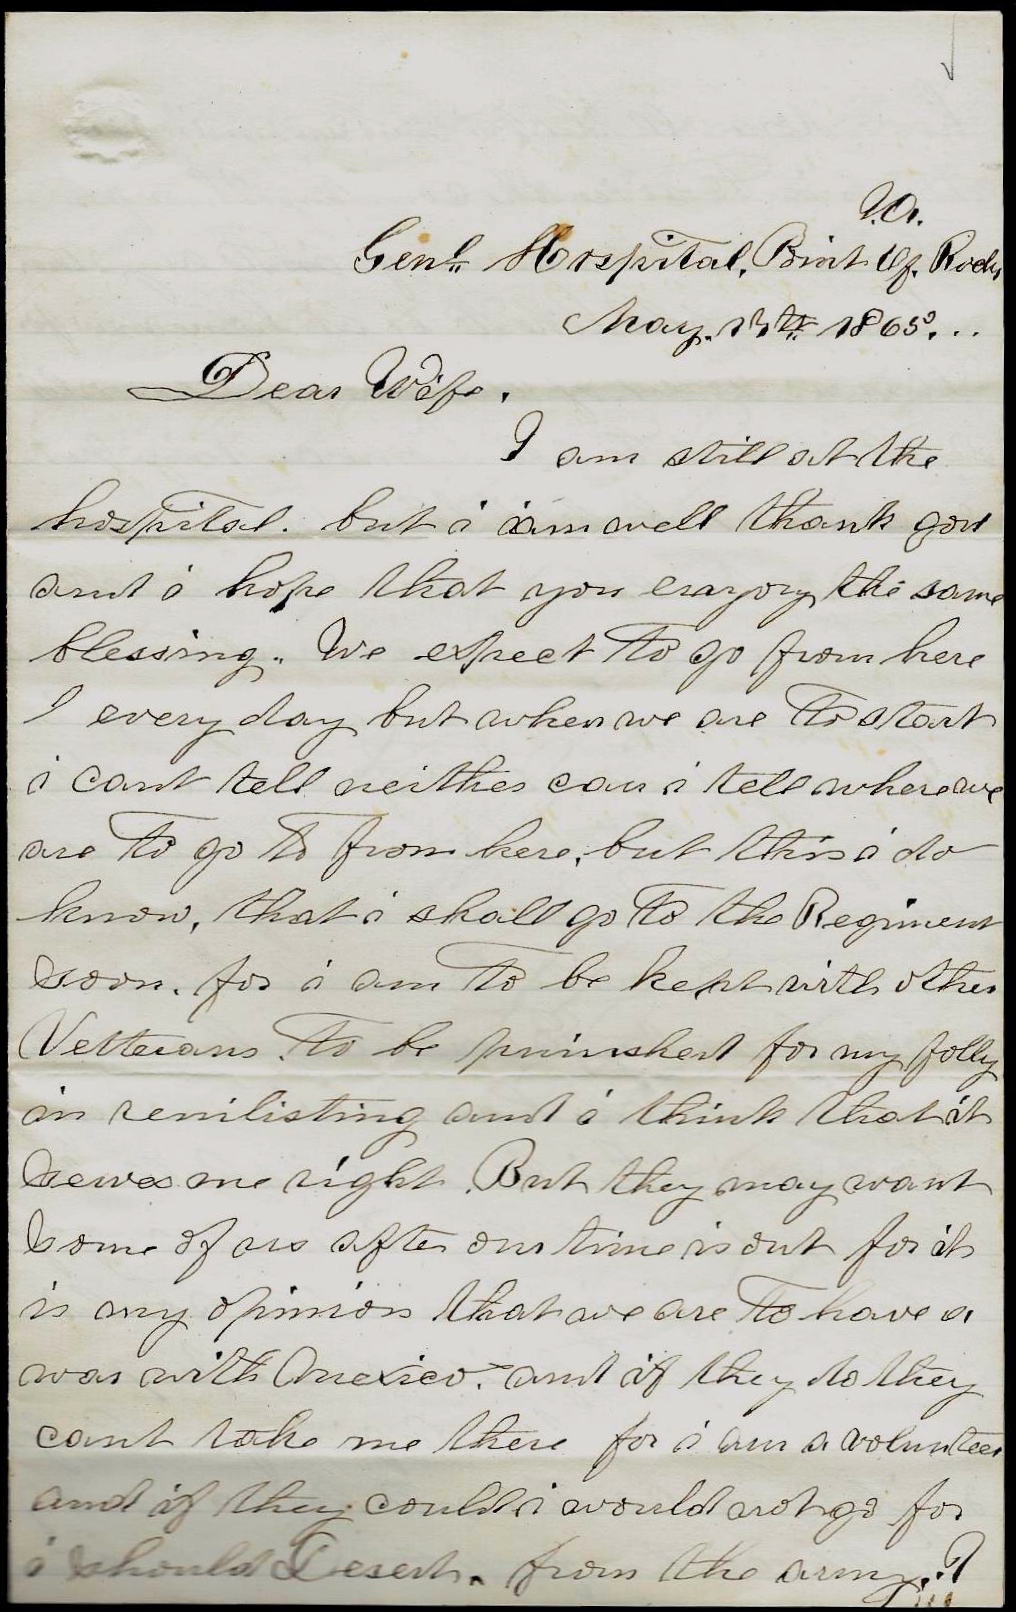 Va.
Genl. Hospital, Point Of. Rocks
May. 13th 1865...
Dear Wife.
I am still at the
hospital. but i iam well thank god
and i hope that you enzyoy the same
blessing. We expect To go from here
I every day but when we are To start
i cant tell neither can i tell where we
are To go To from here, but this i do
know, that i shall go To the Regiment
soon. for i am To be kept with other
Vetterans. To be puinshed for my folly
in reniilisting and i think that it
serves me right. But they may want
some of us after our time is out for it
is my opinion that we are To have a
war with Mexico. and if they do they
cant take me there for i am a volunteer
and if they could i would not go for
i should Desert. from the army..